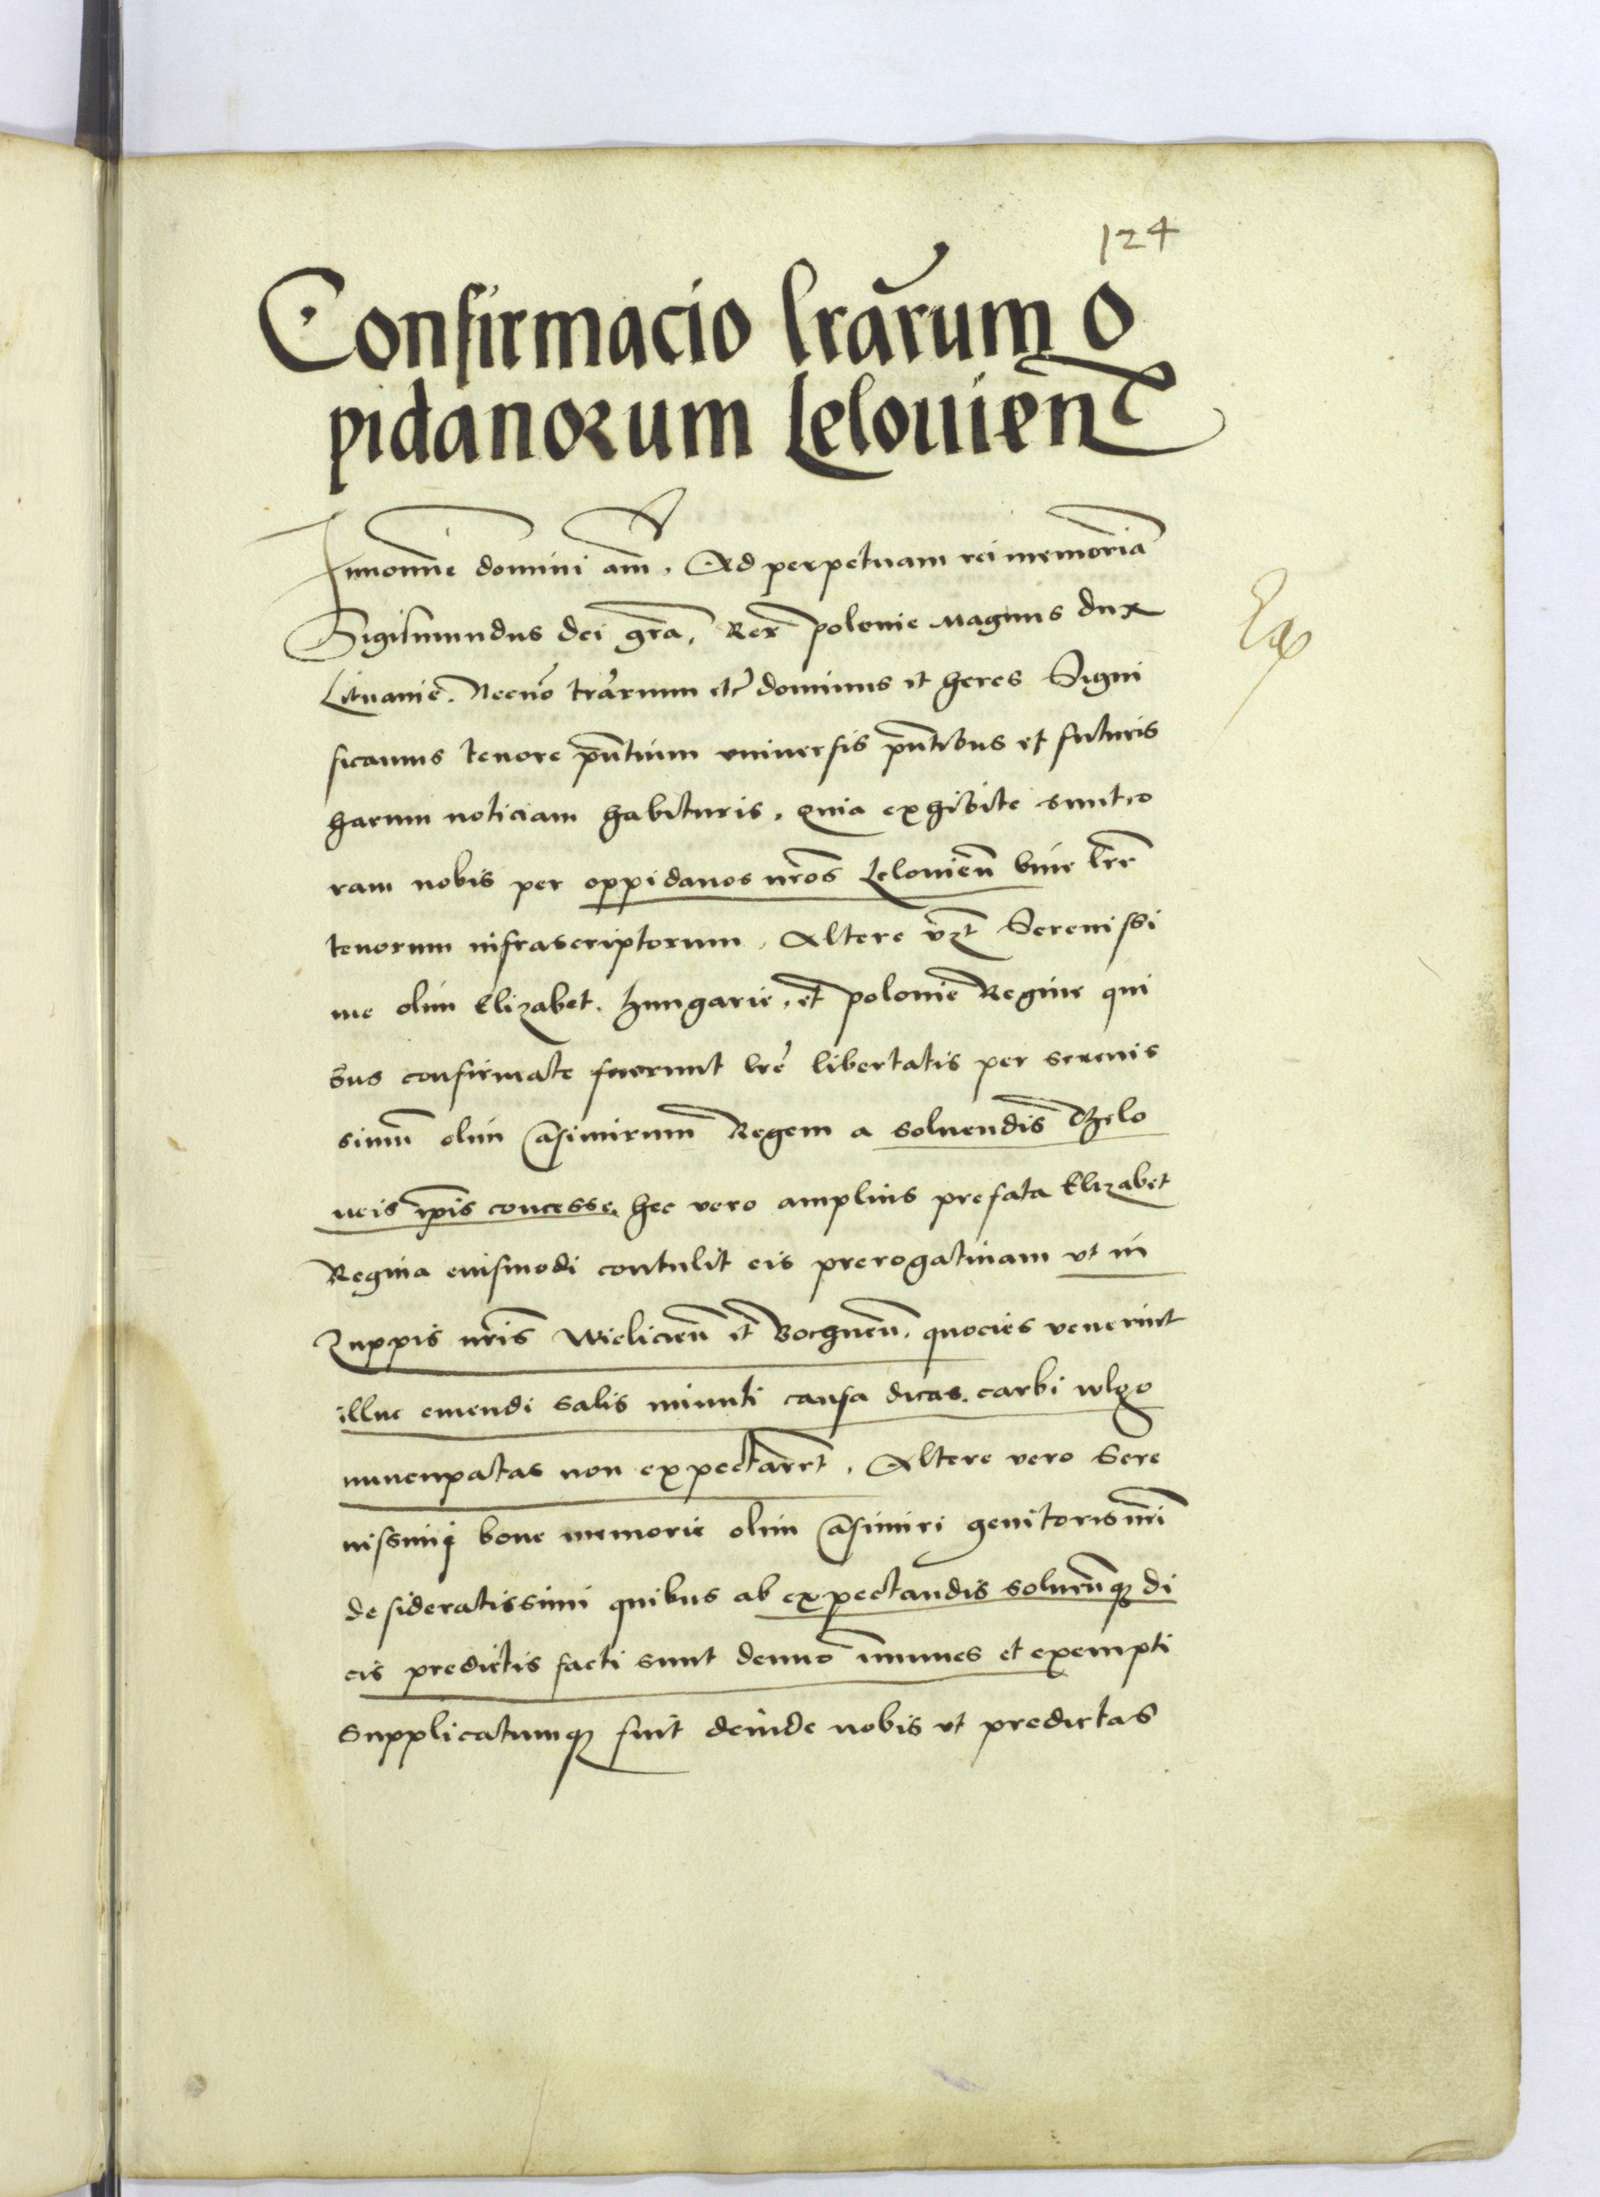 124
Confirmacio lrarum o
pidanorum Lelovien
Innomine domini am. Ad perpetuam rei memoria
Sigismundus dei gra. Rex polonie Magnus dux
Lituanie. Necno trarum etc dominus et heres Signi
ficamus tenore pntium universis pntibus et futuris
harum noticiam habituris. Quia exhibite sunt co
ram nobis per oppidanos nros Lelovien bine lre
tenorum infrascriptorum. Altere vzt Serenissi
me olim Elizabet. hungarie. et polonie Regine qui
bus confirmate fuerunt lre libertatis per serenis
simum olim Casimirum Regem a solvendis Thelo
neis ipis concesse. hec vero amplius prefata Elizabet
Regina eiusmodi contulit eis prerogativam ut in
Zuppis nris Wielicien et Bochnen. quocies venerint
illuc emendi salis minuti causa dicas. carbi wlgo
nuncupatas non expectaret. Altere vero Sere
nissimi bone memorie olim Casimiri genitoris nri
desideratissimi quibus ab expectandis solvendisq di
cis predictis facti sunt denuo immunes et exempti
Supplicatumq fuit deinde nobis ut predictas